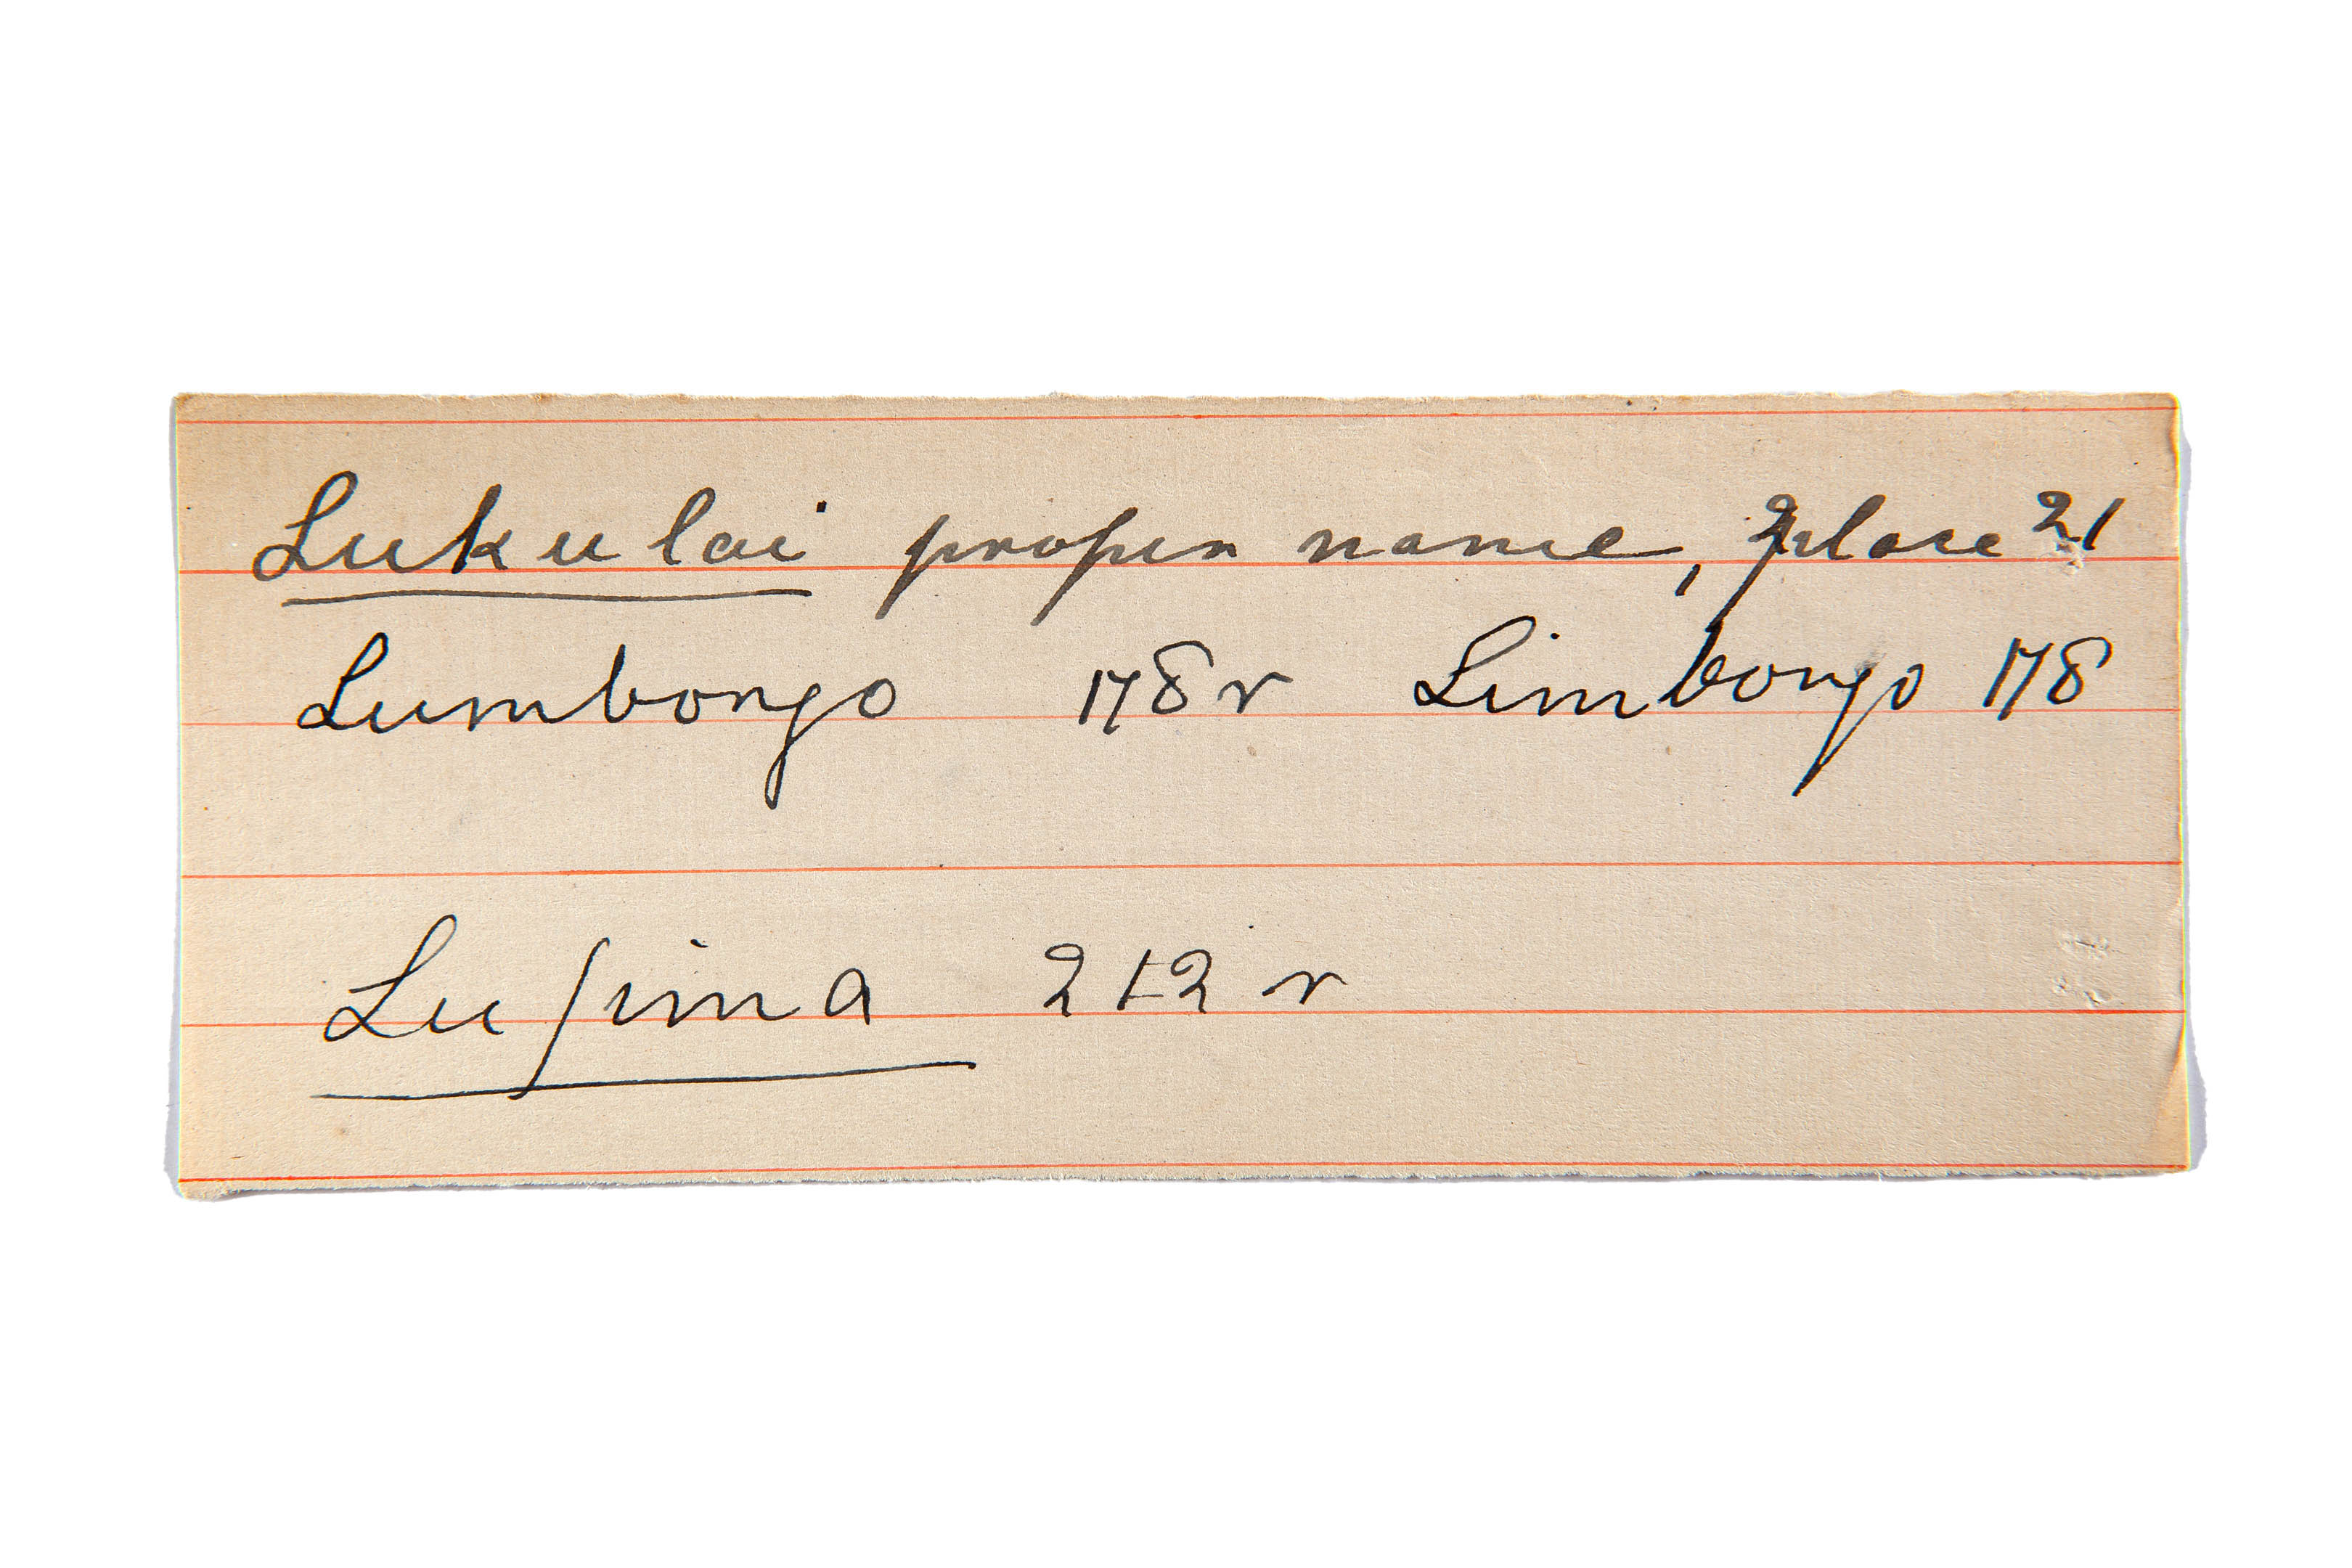 Lukulai proper name, place 21
Lumbongo 178 r Limbongo 178
Lupina 212 r